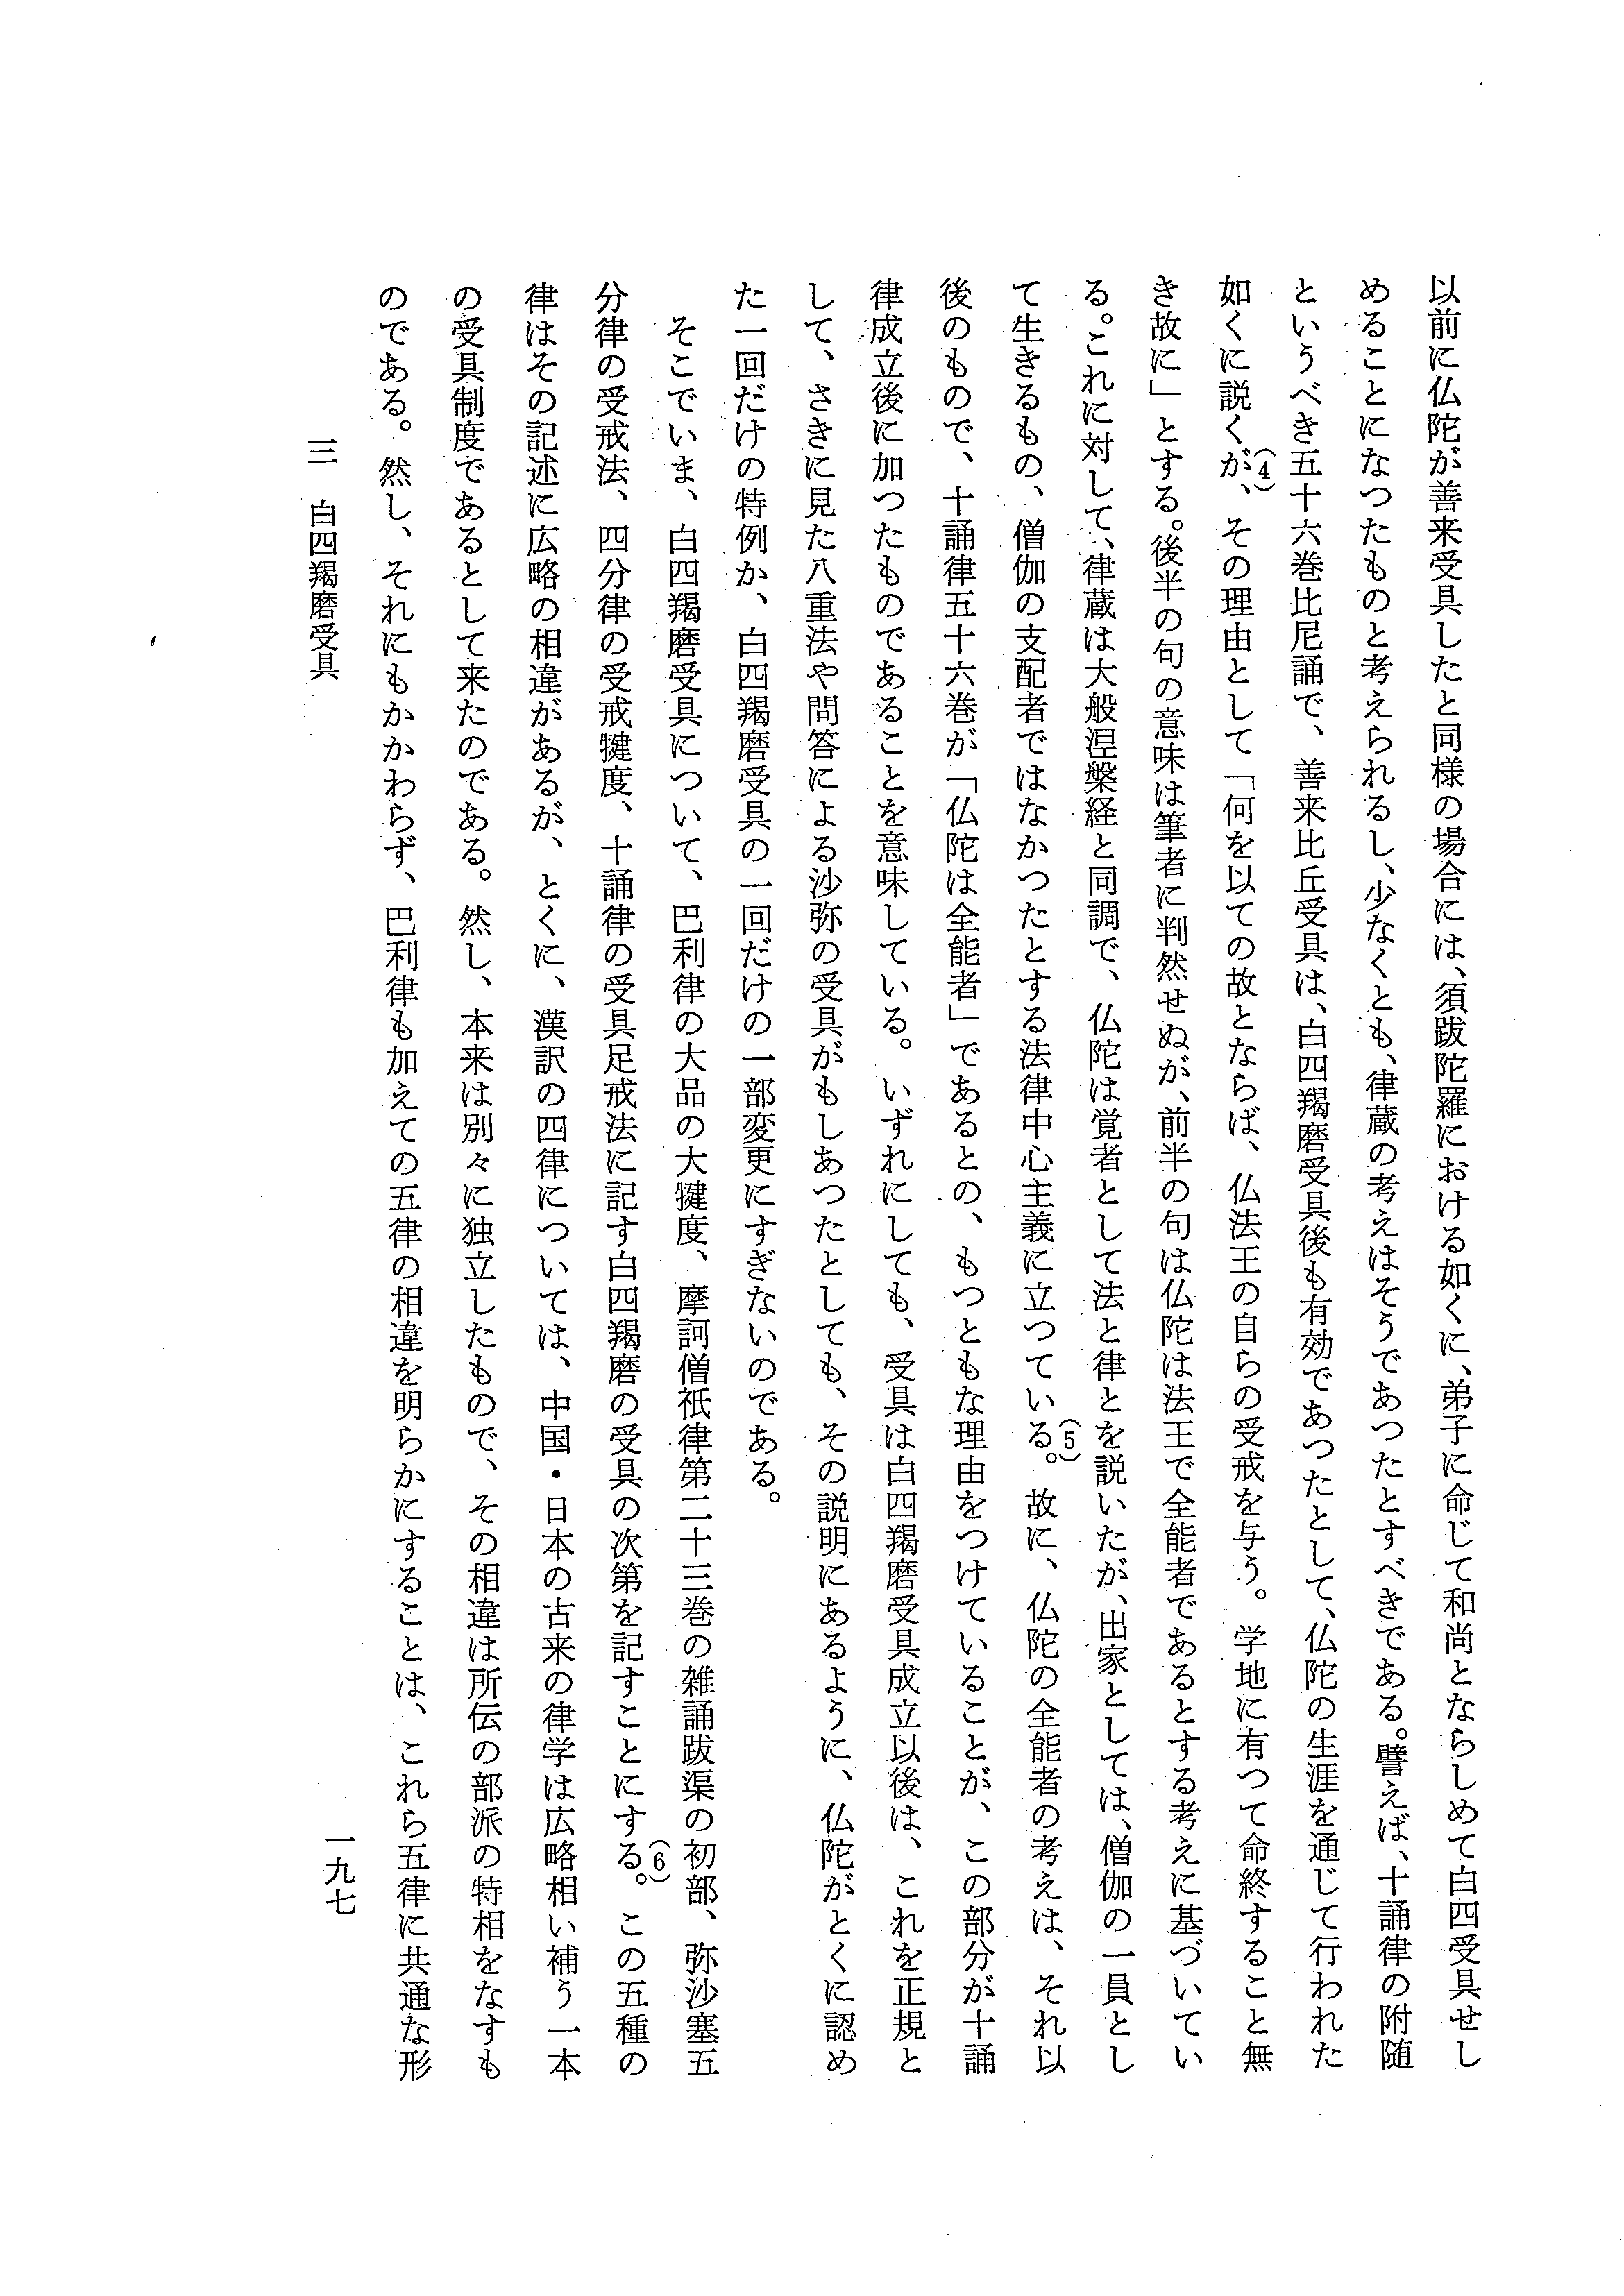 以前に仏陀が善来受具したと同様の場合には、須跋陀羅における如くに、弟子に命じて和尚とならしめて白四受具せし
めることになつたものと考えられるし、少なくとも、律蔵の考えはそうであつたとすべきである。譬えば、十誦律の附随
というべき五十六巻比尼誦で、善来比丘受具は、白四羯磨受具後も有効であつたとして、仏陀の生涯を通じて行われた
如くに説くが、(4)その理由として「何を以ての故とならば、仏法王の自らの受戒を与う。学地に有つて命終すること無
き故に」とする。後半の句の意味は筆者に判然せぬが、前半の句は仏陀は法王で全能者であるとする考えに基づいてい
る。これに対して、律蔵は大般涅槃経と同調で、仏陀は覚者として法と律とを説いたが、出家としては、僧伽の一員とし
て生きるもの、僧伽の支配者ではなかつたとする法律中心主義に立つている。(5)故に、仏陀の全能者の考えは、それ以
後のもので、十誦律五十六巻が「仏陀は全能者」であるとの、もつともな理由をつけていることが、この部分が十誦
律成立後に加つたものであることを意味している。いずれにしても、受具は白四羯磨受具成立以後は、これを正規と
して、さきに見た八重法や問答による沙弥の受具がもしあつたとしても、その説明にあるように、仏陀がとくに認め
た一回だけの特例か、白四羯磨受具の一回だけの一部変更にすぎないのである。
そこでいま、白四羯磨受具について、巴利律の大品の大犍度、摩訶僧祇律第二十三巻の雑誦跋渠の初部、弥沙塞五
分律の受戒法、四分律の受戒犍度、十誦律の受具足戒法に記す白四羯磨の受具の次第を記すことにする。(6)この五種の
律はその記述に広略の相違があるが、とくに、漢訳の四律については、中国・日本の古来の律学は広略相い補う一本
の受具制度であるとして来たのである。然し、本来は別々に独立したもので、その相違は所伝の部派の特相をなすも
のである。然し、それにもかかわらず、巴利律も加えての五律の相違を明らかにすることは、これら五律に共通な形
三 白四羯磨受具
一九七